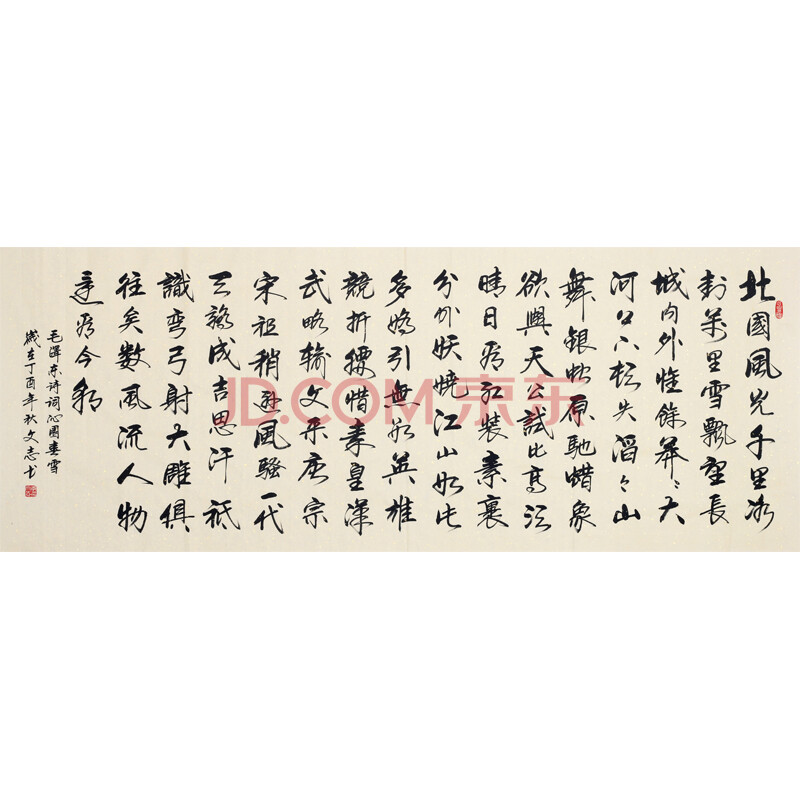 北國風光千里冰
封萬里雪飄望長
城内外惟餘莽々大
河上下頓失滔々山
舞銀蛇原馳蜡象
欲與天公試比高須
晴日看紅裝素裹
分外妖嬈江山如此
多嬌引無數英雄
競折腰惜秦皇漢
武略输文采唐宗
宋祖稍遜風騷一代
天驕成吉思汗祗
識彎弓射大雕俱
往矣數風流人物
還看今朝
毛澤东诗詞沁園春雪
歲在丁酉年秋文志书
JD.COM 京东